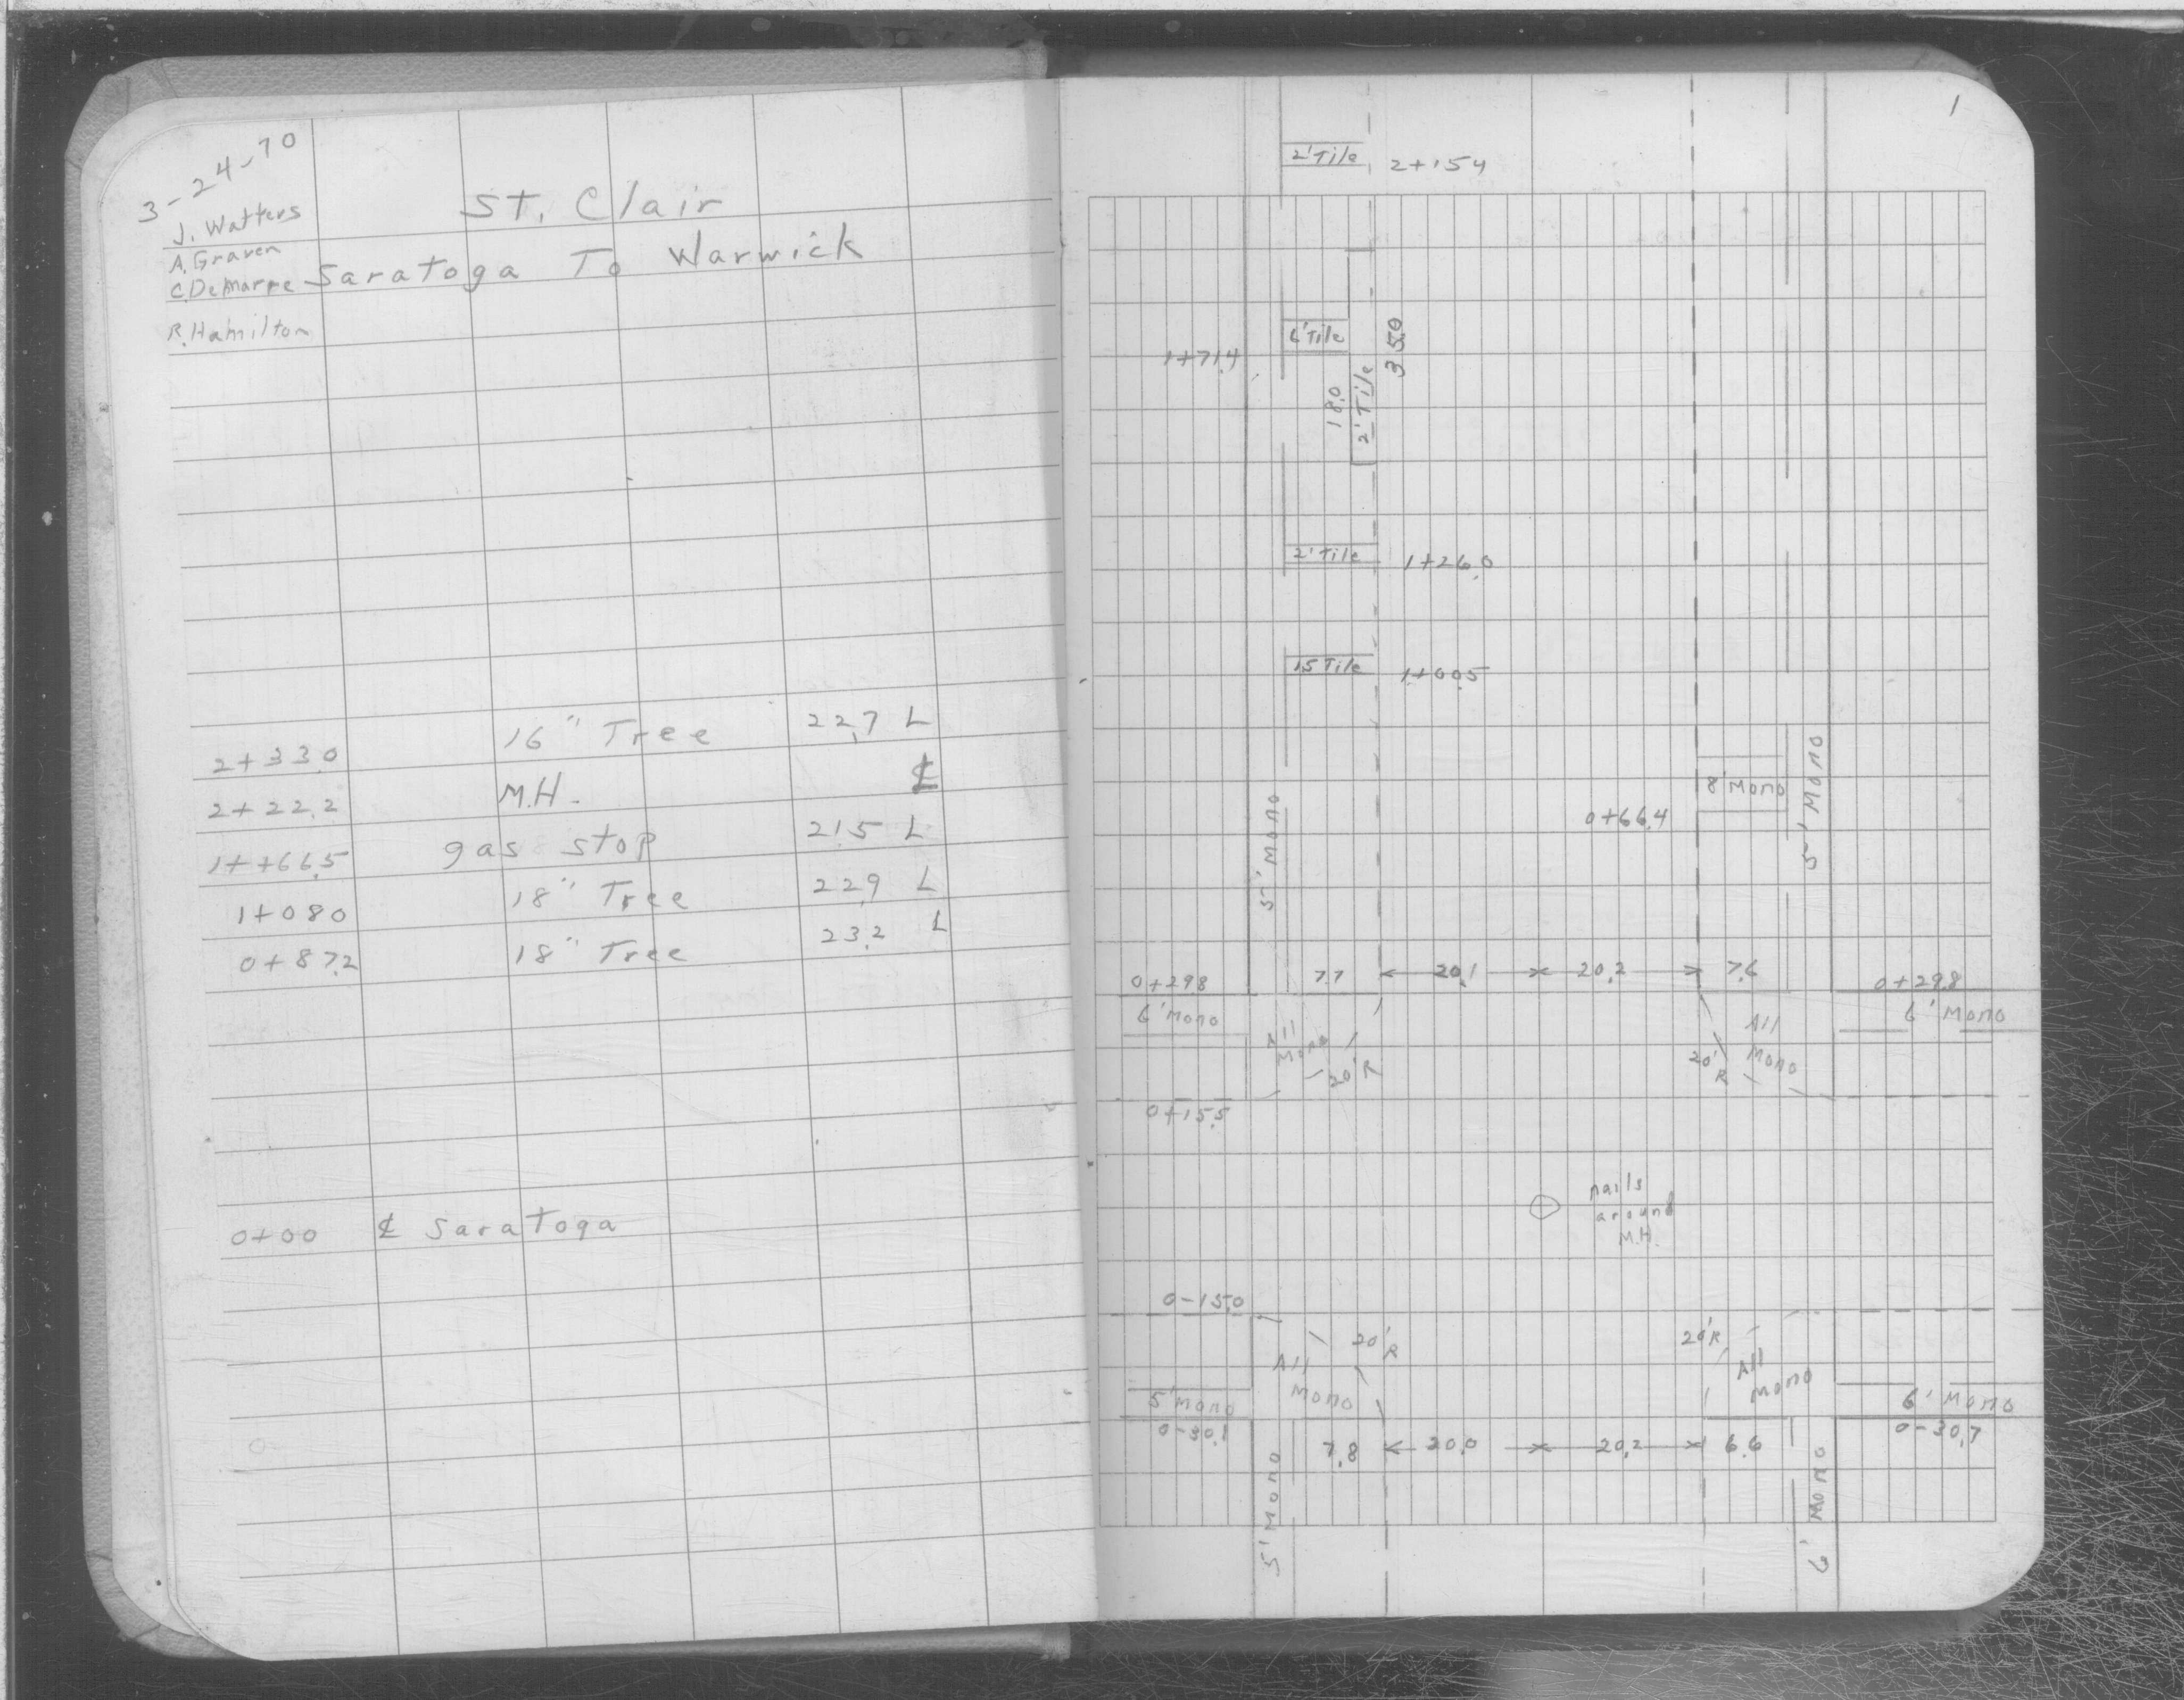 3-24-70
J. Watters
A. Graven
C. DeMarre
R. Hamilton
St. Clair
Saratoga To Warwick
2+33.0 16" Tree 22.7 L
2+22.2 M.H. ℄
1++66.5 gas stop 21.5 L
1+08.0 18" Tree 22.9 L
0+87.2 18" Tree 23.2 L
0+00 ℄ Saratoga
1
2' Tile 2+15.4
1+71.4 6' Tile
18.0 2' Tile 35.0
2' Tile 1+26.0
15 Tile 1+00.5
8' Mono
0+66.4
5' Mono
5' Mono
0+29.8 7.7 20.1 20.2 7.6 0+29.8
6' Mono 6' Mono
All Mono 20' R
20' R All Mono
0+15.5
nails
around
M.H.
0-15.0
20' R 20' R
All Mono All Mono
5' Mono 6' Mono
0-30.1 0-30.7
7.8 20.0 20.2 6.6
5' Mono 6' Mono